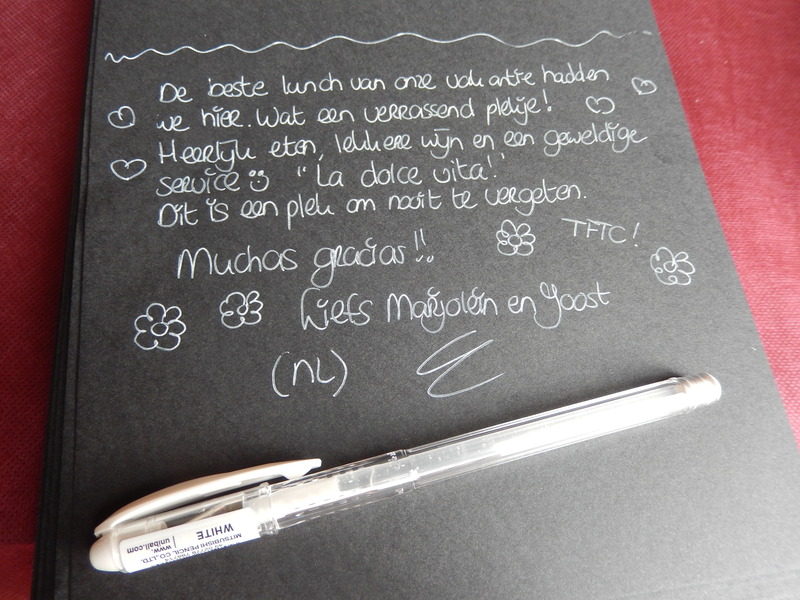 De beste lunch van onze vakantie hadden
we hier. Wat een verrassend plekje!
Heerlijk eten, lekkere wijn en een geweldige
service "La dolce vita!"
Dit is een plek om nooit te vergeten.
Muchas gracias!!
TFTC!
Liefs Marjolein en Joost
(NL)
WHITE
MITSUBISHI PENCIL CO., LTD.
www.
uniball.com